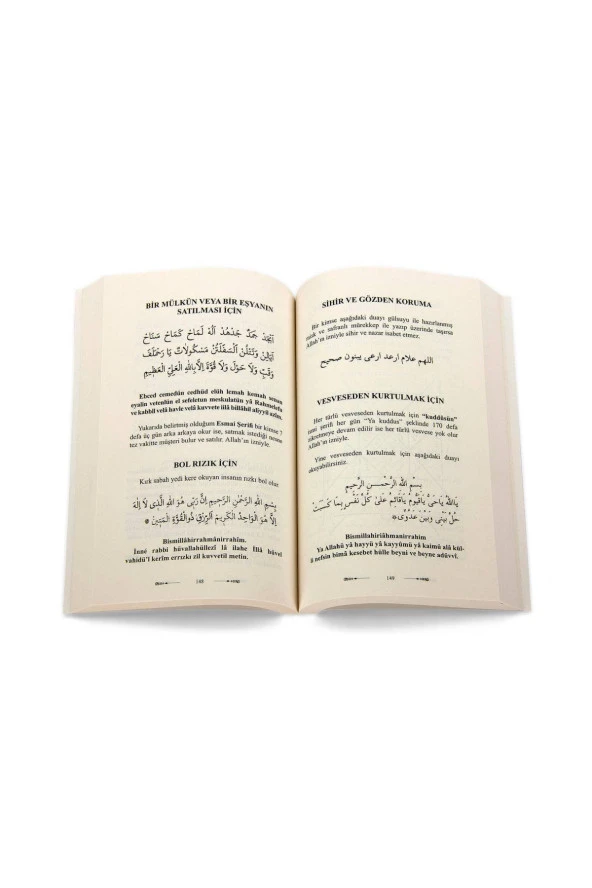 BİR MÜLKÜN VEYA BİR EŞYANIN
SATILMASI İÇİN
وَقَبٍّ وَلَا حَوْلَ وَلَا قُوَّةَ إِلَّا بِاللهِ الْعَلِيِّ الْعَظِيمِ
Ebced cemedün cedhüd elüh lemah kemah
eyalin vetenlün el sefeletun meskulatün yâ Rahmelefa
ve kabbil velâ havle velâ kuvvete illâ billâhil aliyyü azîm.
Yukarıda belirtmiş olduğun Esmai Şerifi bir kimse 7
defa üç gün arka arkaya okur ise, satmak istediği nesne
tez vakitte müşteri bulur ve satılır. Allah'ın izniyle.
BOL RIZIK İÇİN
Kırk sabah yedi kere okuyan insanın rızkı bol olur.
بِسْمِ اللهِ الرَّحْمٰنِ الرَّحِيمِ إِنَّ رَبِّى هُوَ اللهُ الَّذِى لَا إِلٰهَ
إِلَّا هُوَ الْوَاحِدُ الْكَرِيمُ الرِّزْقِ ذُوالْقُوَّةِ الْمَتِينُ
Bismillâhirrahmânirrahîm.
İnné rabbi hüvallahüllezî lâ ilahe illâ hüvel
vahidü'l kerîm errızkı zil kuvvetil metîn.
SİHİR VE GÖZDEN KORUMA
Bir kimse aşağıdaki duayı gülsuyu ile hazırlanmış
misk ve safranlı mürekkep ile yazıp üzerinde taşırsa
Allah'ın izniyle sihir ve nazar isabet etmez.
اللهم علام ارعد ارعى يبنون صحيح
VESVESEDEN KURTULMAK İÇİN
Her türlü vesveseden kurtulmak için "kuddûsün"
ismi şerifi her gün "Ya kuddus" şeklinde 170 defa
zikretmeye devam edilir ise her türlü vesvese yok olur
Allah'ın izniyle.
Yine vesveseden kurtulmak için aşağıdaki duayı
okuyabilirsiniz.
بِسْمِ اللهِ الرَّحْمٰنِ الرَّحِيمِ
يَااَللهُ يَاحَىُّ يَاقَيُّومُ يَاقَائِمُ عَلٰى كُلِّ نَفْسٍ بِمَا كَسَبَتْ
حُلْ بَيْنِى وَبَيْنَ عَدُوِّى
Bismillahiriâhmanirrahim
Ya Allahü yâ hayyü yâ kayyümü yâ kaimü alâ kül-
li nefsin bimâ kesebet hülle beyni ve beyne adüvvî.
149